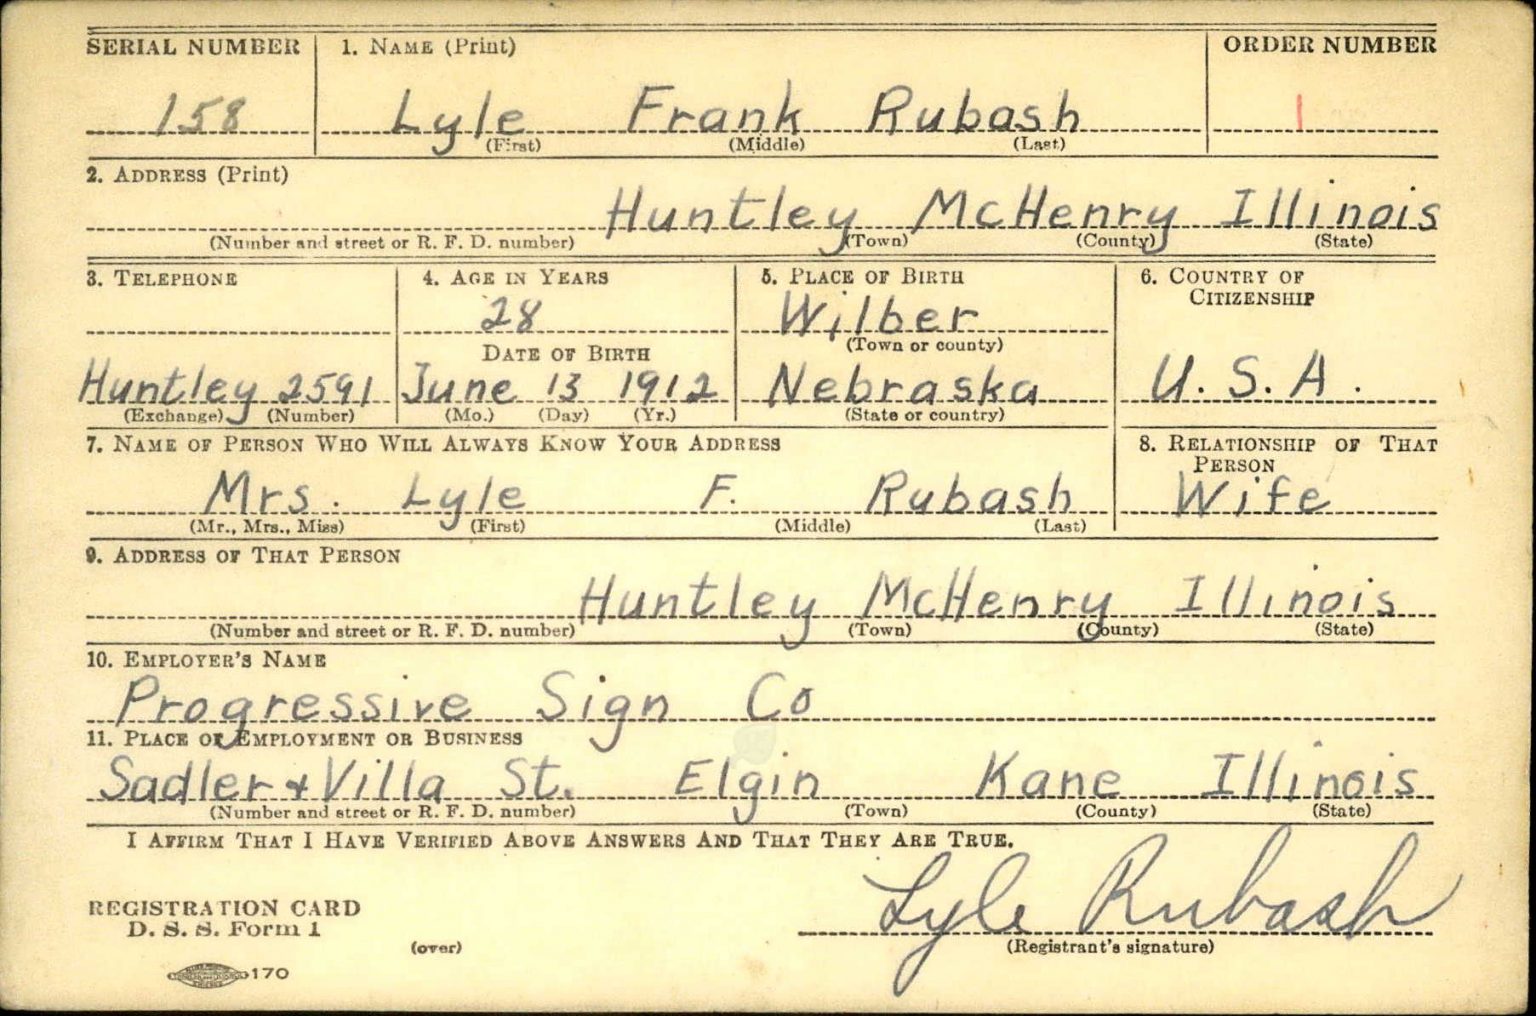 SERIAL NUMBER 1. NAME (Print) ORDER NUMBER
158 Lyle Frank Rubash 1
(First) (Middle) (Last)
2. ADDRESS (Print)
Huntley McHenry Illinois
(Number and street or R. F. D. number) (Town) (County) (State)
3. TELEPHONE 4. AGE IN YEARS 5. PLACE OF BIRTH 6. COUNTRY OF
CITIZENSHIP
28 Wilber
(Town or county)
DATE OF BIRTH
Huntley 2591 June 13 1912 Nebraska U. S. A.
(Exchange) (Number) (Mo.) (Day) (Yr.) (State or country)
7. NAME OF PERSON WHO WILL ALWAYS KNOW YOUR ADDRESS 8. RELATIONSHIP OF THAT
PERSON
Mrs. Lyle F. Rubash Wife
(Mr., Mrs., Miss) (First) (Middle) (Last)
9. ADDRESS OF THAT PERSON
Huntley McHenry Illinois
(Number and street or R. F. D. number) (Town) (County) (State)
10. EMPLOYER'S NAME
Progressive Sign Co
11. PLACE OF EMPLOYMENT OR BUSINESS
Sadler + Villa St. Elgin Kane Illinois
(Number and street or R. F. D. number) (Town) (County) (State)
I AFFIRM THAT I HAVE VERIFIED ABOVE ANSWERS AND THAT THEY ARE TRUE.
Lyle Rubash
REGISTRATION CARD
D. S. S. Form 1
(over) (Registrant's signature)
170